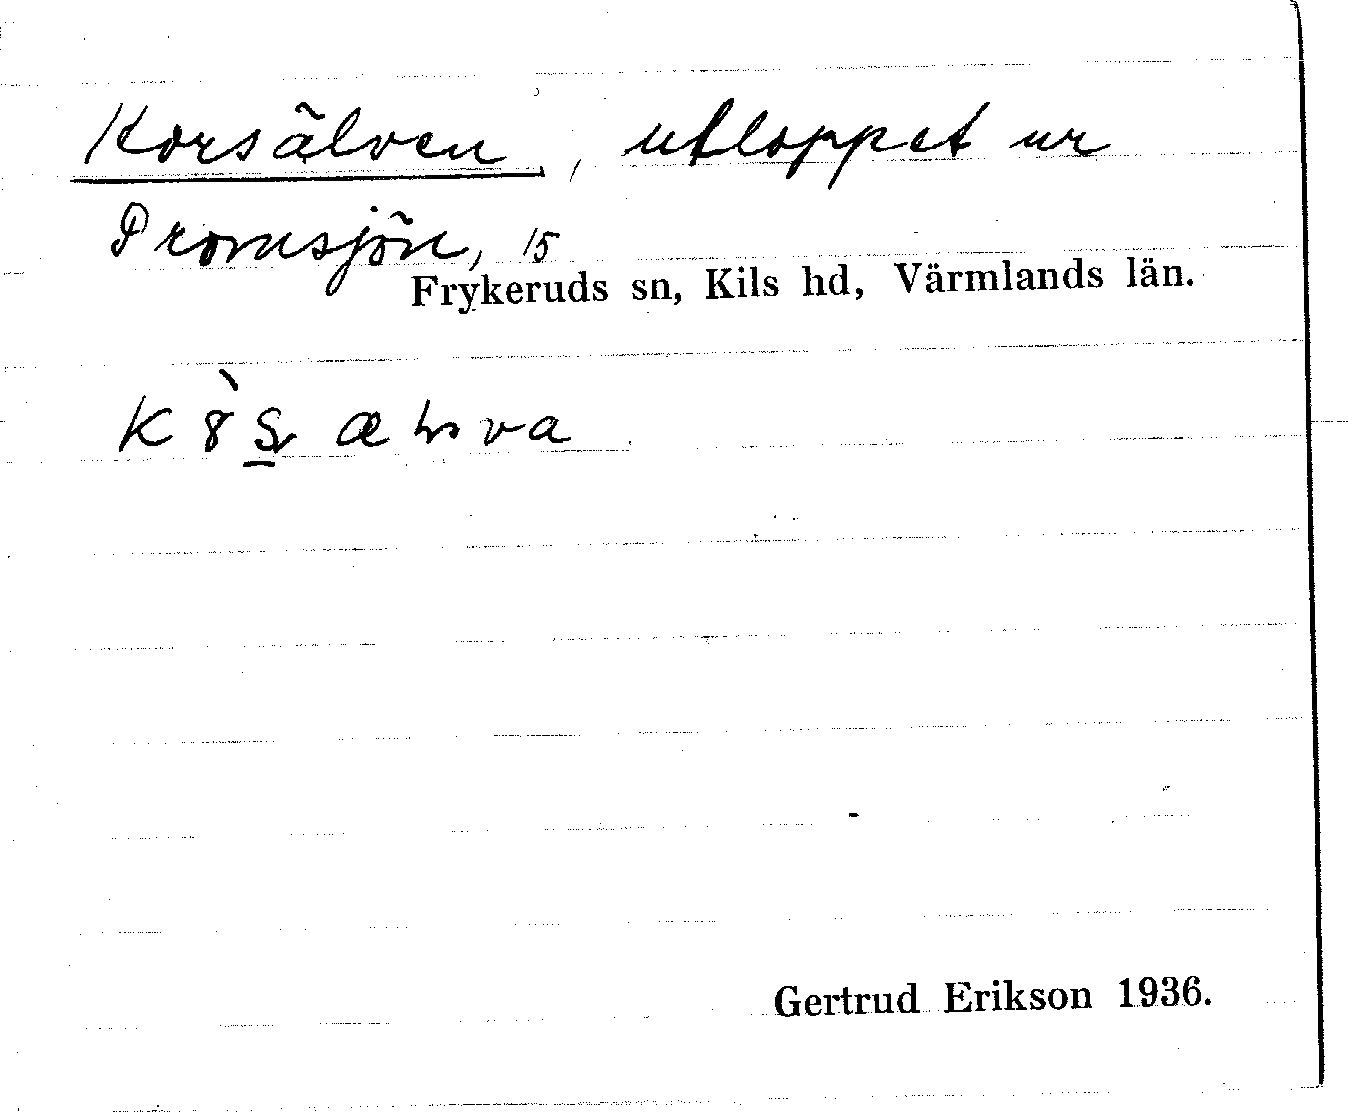 Korsälven, utloppet ur
Promsjön, 15
Frykeruds sn, Kils hd, Värmlands län.
Gertrud Erikson 1936.